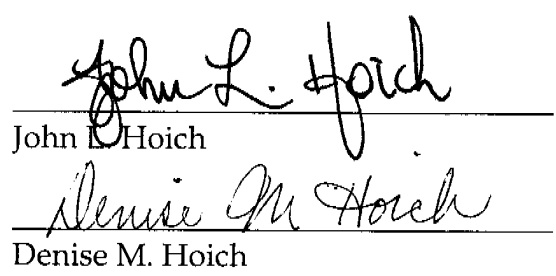 John L. Hoich
John L. Hoich
Denise M Hoich
Denise M. Hoich